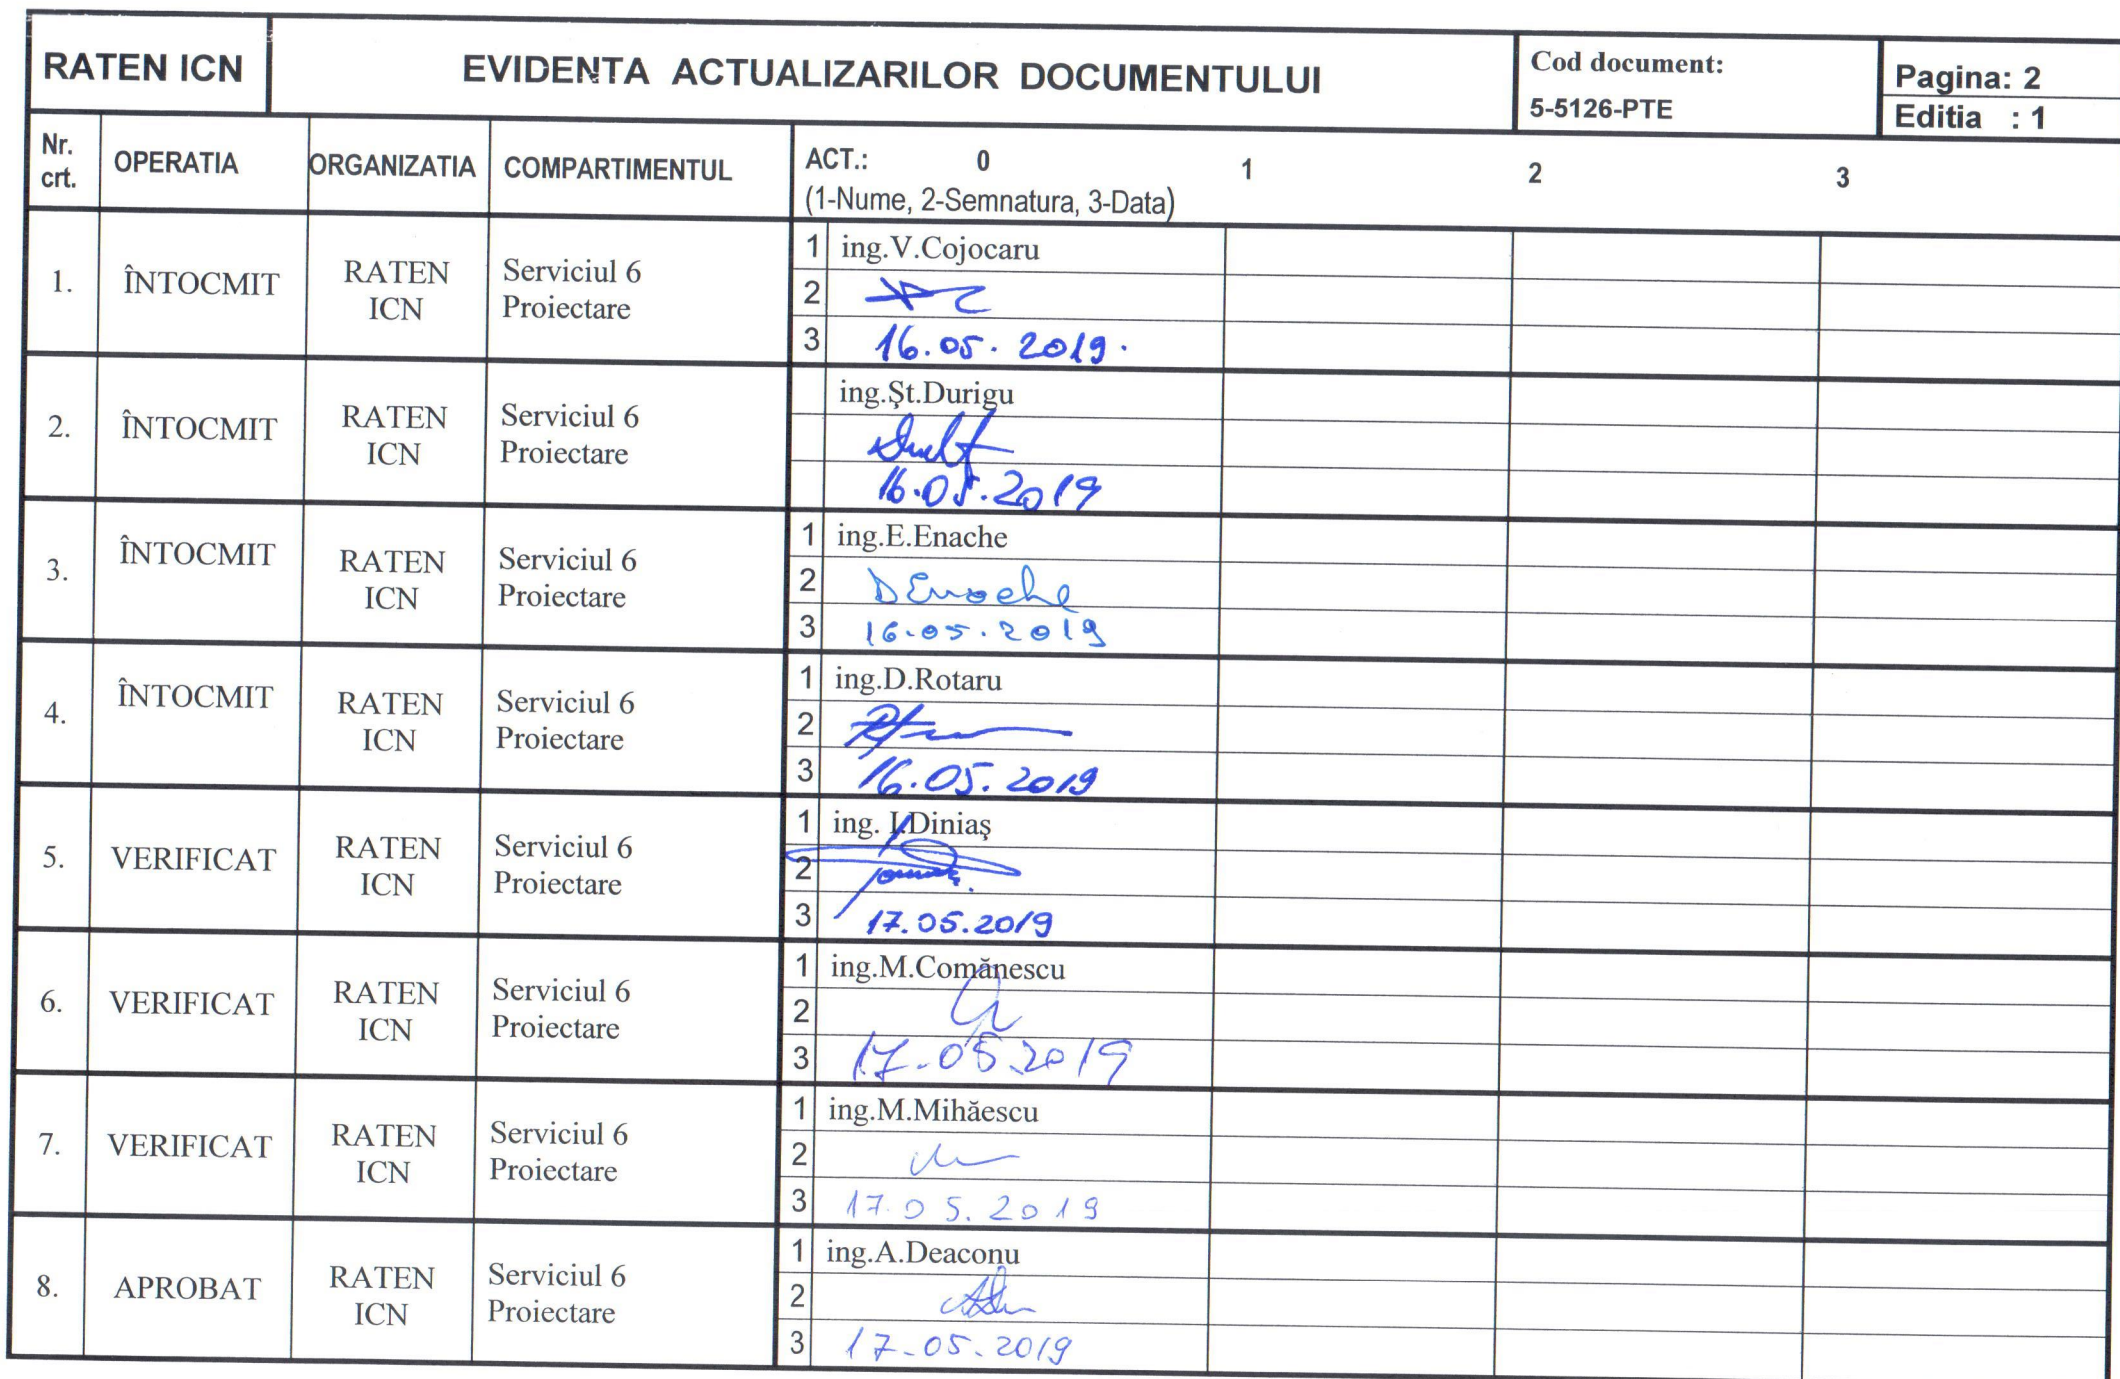 RATEN ICN
EVIDENTA ACTUALIZARILOR DOCUMENTULUI
Cod document:
5-5126-PTE
Pagina: 2
Editia : 1
Nr. crt.
OPERATIA
ORGANIZATIA
COMPARTIMENTUL
ACT.: 0 1 2 3
(1-Nume, 2-Semnatura, 3-Data)
1.
ÎNTOCMIT
RATEN
ICN
Serviciul 6
Proiectare
1 ing.V.Cojocaru
2
3 16.05.2019.
2.
ÎNTOCMIT
RATEN
ICN
Serviciul 6
Proiectare
ing.Şt.Durigu
16.05.2019
3.
ÎNTOCMIT
RATEN
ICN
Serviciul 6
Proiectare
1 ing.E.Enache
2 DEnache
3 16.05.2019
4.
ÎNTOCMIT
RATEN
ICN
Serviciul 6
Proiectare
1 ing.D.Rotaru
2
3 16.05.2019
5.
VERIFICAT
RATEN
ICN
Serviciul 6
Proiectare
1 ing. I.Diniaş
2
3 17.05.2019
6.
VERIFICAT
RATEN
ICN
Serviciul 6
Proiectare
1 ing.M.Comănescu
2
3 17.05.2019
7.
VERIFICAT
RATEN
ICN
Serviciul 6
Proiectare
1 ing.M.Mihăescu
2
3 17.05.2019
8.
APROBAT
RATEN
ICN
Serviciul 6
Proiectare
1 ing.A.Deaconu
2
3 17.05.2019